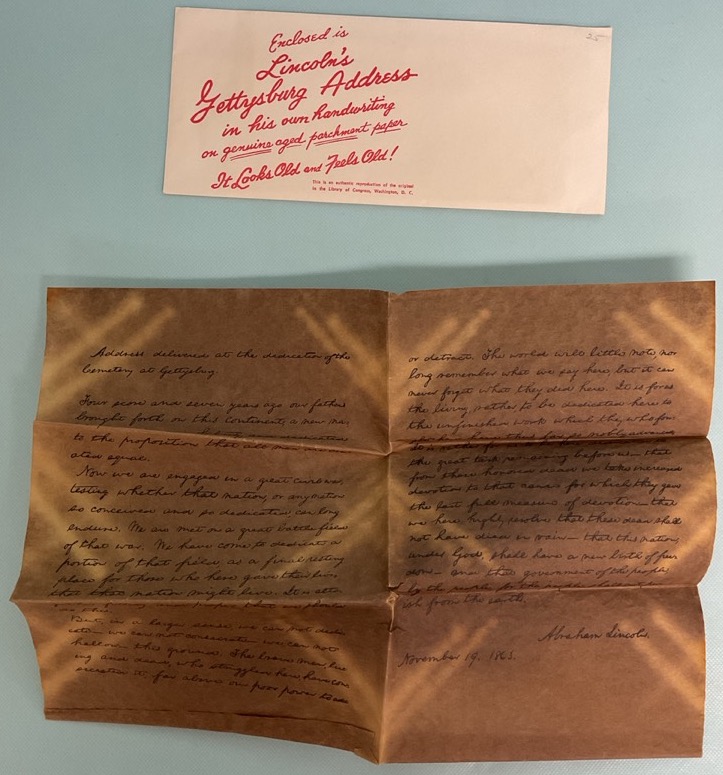 Enclosed is
Lincoln's
Gettysburg Address
in his own handwriting
on genuine aged parchment paper
It Looks Old and Feels Old!
This is an authentic reproduction of the original
in the Library of Congress, Washington, D. C.
25
Address delivered at the dedication of the
Cemetery at Gettysburg.
Four score and seven years ago our fathers
brought forth on this continent, a new na-
to the proposition that all men
ated equal.
Now we are engaged in a great civil war,
testing whether that nation, or any nation
so conceived and so dedicated, can long
endure. We are met on a great battle field
of that war. We have come to dedicate a
portion of that field, as a final resting
place for those who here gave their lives
that that nation might live. It is alto-
But, in a larger sense, we can not dedi-
cate— we can not consecrate— we can not
hallow— this ground. The brave men, liv-
ing and dead, who struggled here have con-
secrated it, far above our poor power to add
or detract. The world will little note, nor
long remember what we say here, but it can
never forget what they did here. It is for us
the living, rather, to be dedicated here to
the unfinished work which they who fou-
the great task remaining before us— that
from these honored dead we take increased
devotion to that cause for which they gave
the last full measure of devotion— that
we here highly resolve that these dead shall
not have died in vain— that this nation,
under God, shall have a new birth of free-
dom— and that government of the people,
by the people, for the people,
ish from the earth.
Abraham Lincoln.
November 19, 1863.